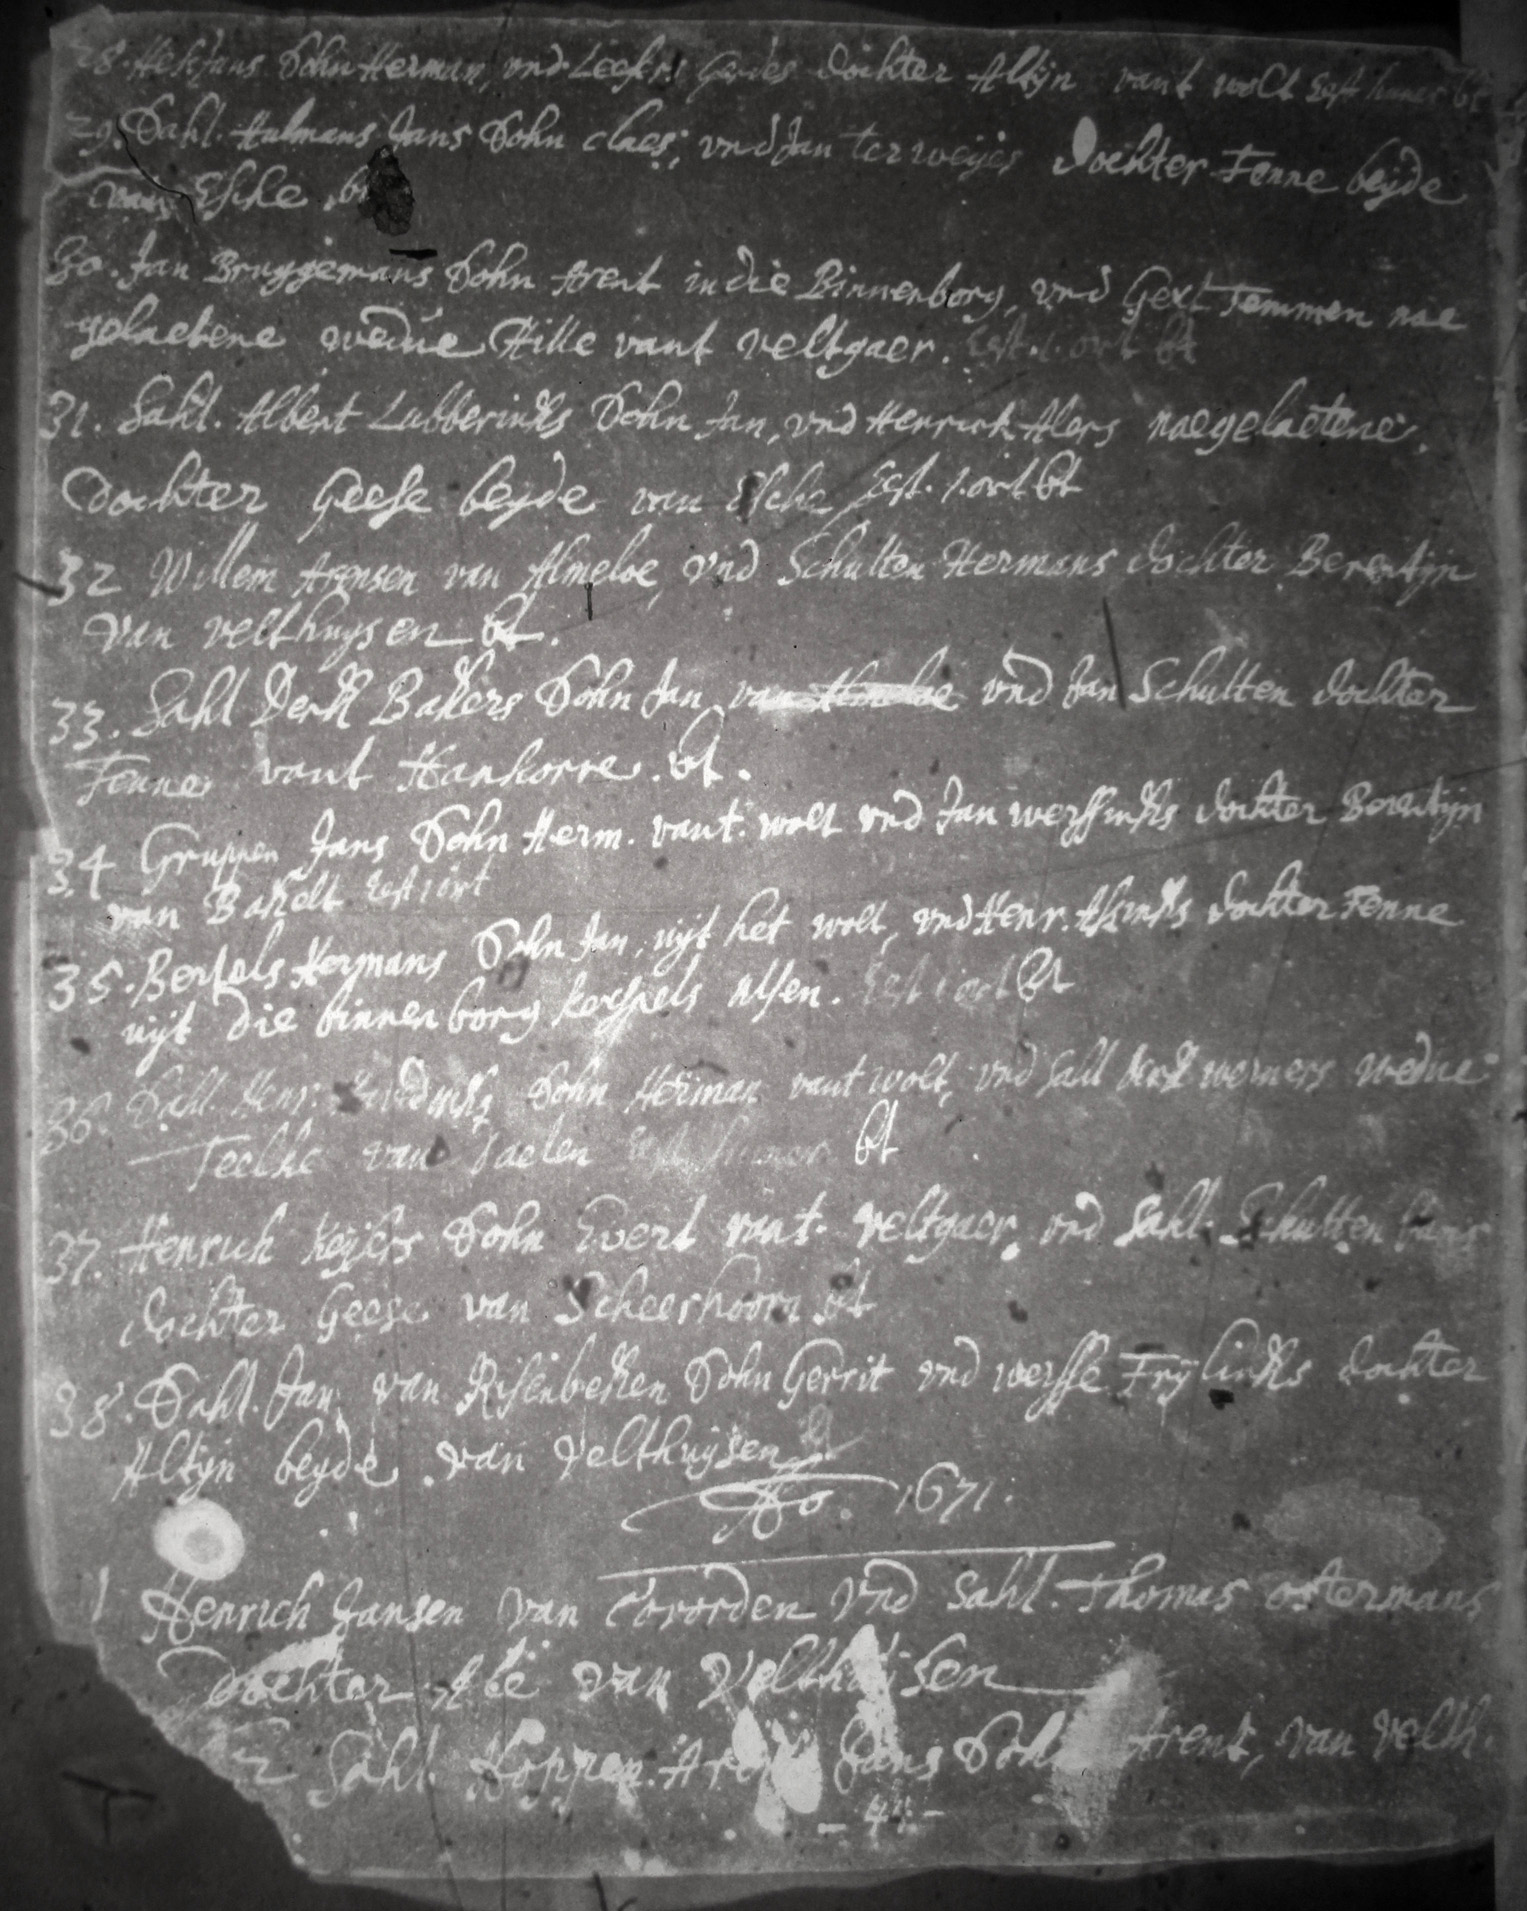 28. Hekjans Sohn Herman, und Dochter Altijn vant wolt
29. Sahl. Hulmans Jans Sohn claes, und Jan ter weijes Dochter Fenne beijde
van Esche
30. Jan Bruggemans Sohn Arent in die Binnenborg, und Gert Temmen nae
gelaetene wedue Hille vant veltgaer. Est. 1. ort bt
31. Sahl. Albert Lubberinks Sohn Jan, und Henrich Alers naegelaetene
Dochter Geese beijde van Esche Est. 1. ort bt
32 Willem Arensen van Almeloe, und Schulten Hermans dochter Berentijn
van velthuijsen bt.
33. Sahl Derk Bakers Sohn Jan van und Jan Schulten dochter
Fenne vant Hankorve. bt.
34 Gruppen Jans Sohn Herm. vant wolt und Jan werssinks dochter Berentijn
van Bakelt Est 1 ort
35. Bertels Hermans Sohn Jan, uijt het wolt, und Henr. Alsinks dochter Fenne
uijt die binnenborg kerspels ulsen. Est 1 ort bt
36. Sahl. Henr. Sohn Herman vant wolt, und Sahl Derk werners wedue
Teelke van Daelen bt
37. Henrich Keijers Sohn Evert vant veltgaer, und Sahl. Schulten
dochter Geese van Scheerhoorn bt
38. Sahl. Jan van Risenbeken Sohn Gerrit und wersse Frijlinks dochter
Altijn beijde van Velthuijsen
Ao. 1671.
1 Henrich Jansen van Covorden und Sahl. Thomas ostermans
Dochter Ale van Velthuisen
2 Sahl. Hoppen Jans Sohn Arent, van velth.
- 44 -